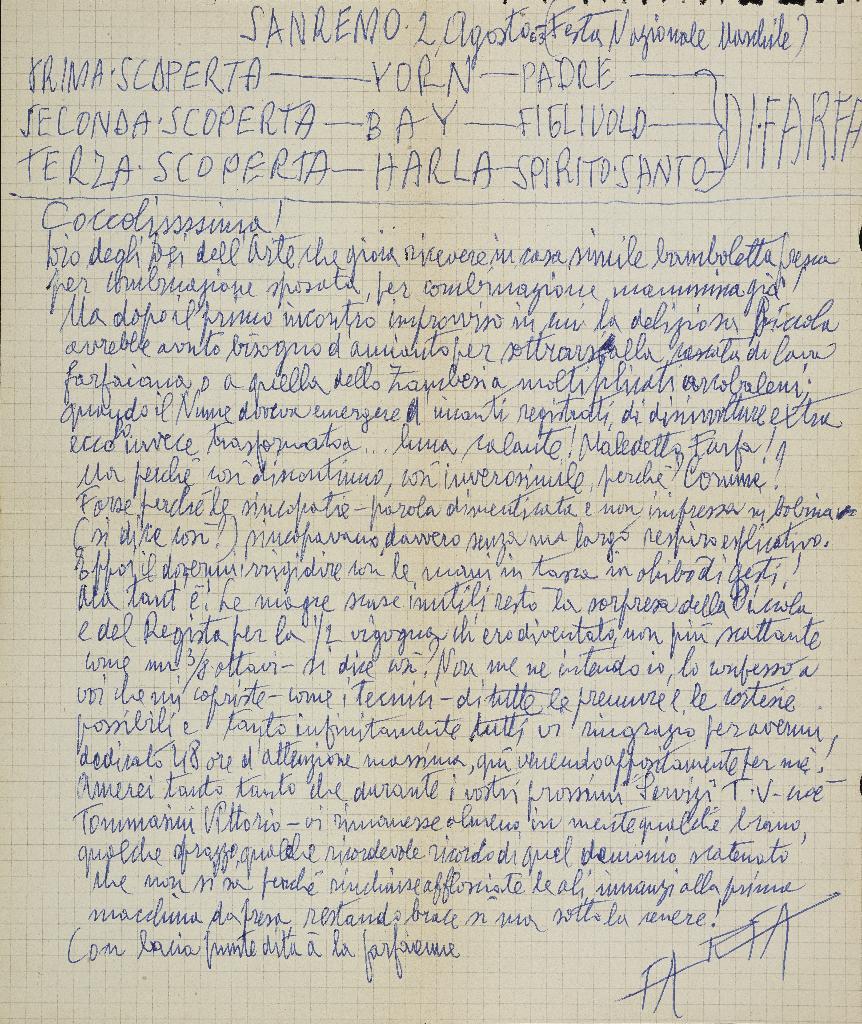 SANREMO. 2 Agosto 63 (Festa Nazionale Maschile)
PRIMA. SCOPERTA — YORN — PADRE
SECONDA. SCOPERTA — BAY — FIGLIUOLO — DI. FARFA
TERZA. SCOPERTA — HARLA — SPIRITO. SANTO
Coccolissssima!
Dio degli Dei dell'Arte che gioia ricevere in casa simile bamboletta fresca
per combinazione sposata, per combinazione mammina già!
Ma dopo il primo incontro improvviso in cui la deliziosa Piccola
avrebbe avuto bisogno d'amianto per sottrarsi alla cascata di lava
farfaiana, o a quella dello Zambesi a moltiplicati arcobaleni;
quando il Nume doveva emergere d'incanti registrati, di disinvolture extra
ecco invece trasformatosi... luna calante! Maledetto Farfa!
Ma perchè così discontinuo, così inverosimile, perchè? Comme?
Forse perchè le sincopatie - parola dimenticata e non impressa in bobina
(si dice così?) sincopavano davvero senza un largo respiro esplicativo.
Eppoi il dovermi irrigidire con le mani in tasca in ohibò di gesti!
Ma tant'è! Le magre scuse inutili resto la sorpresa della Piccola
e del Regista per la 1/2 vigogna ch'ero diventato, non più scattante
come un 3/8 ottavi - si dice così? Non me ne intendo io, lo confesso a
voi che mi copriste - come i tecnici - di tutte le premure e le cortesie
possibili e tanto infinitamente tutti vi ringrazio per avermi,
dedicato 48 ore d'attenzione massima, qui venendo appositamente per me!
Amerei tanto tanto che durante i vostri prossimi Servizi T.V - cioè
Tommasini Vittorio - vi rimanesse almeno in mente qualche brano,
qualche sprazzo, qualche ricordevole ricordo di quel demonio scatenato
che non si sa perchè rinchiuse afflosciate le ali innanzi alla prima
macchina da presa restando brace sì ma sotto la cenere!
Con bacia punte dita à la farfaienne
FARFA